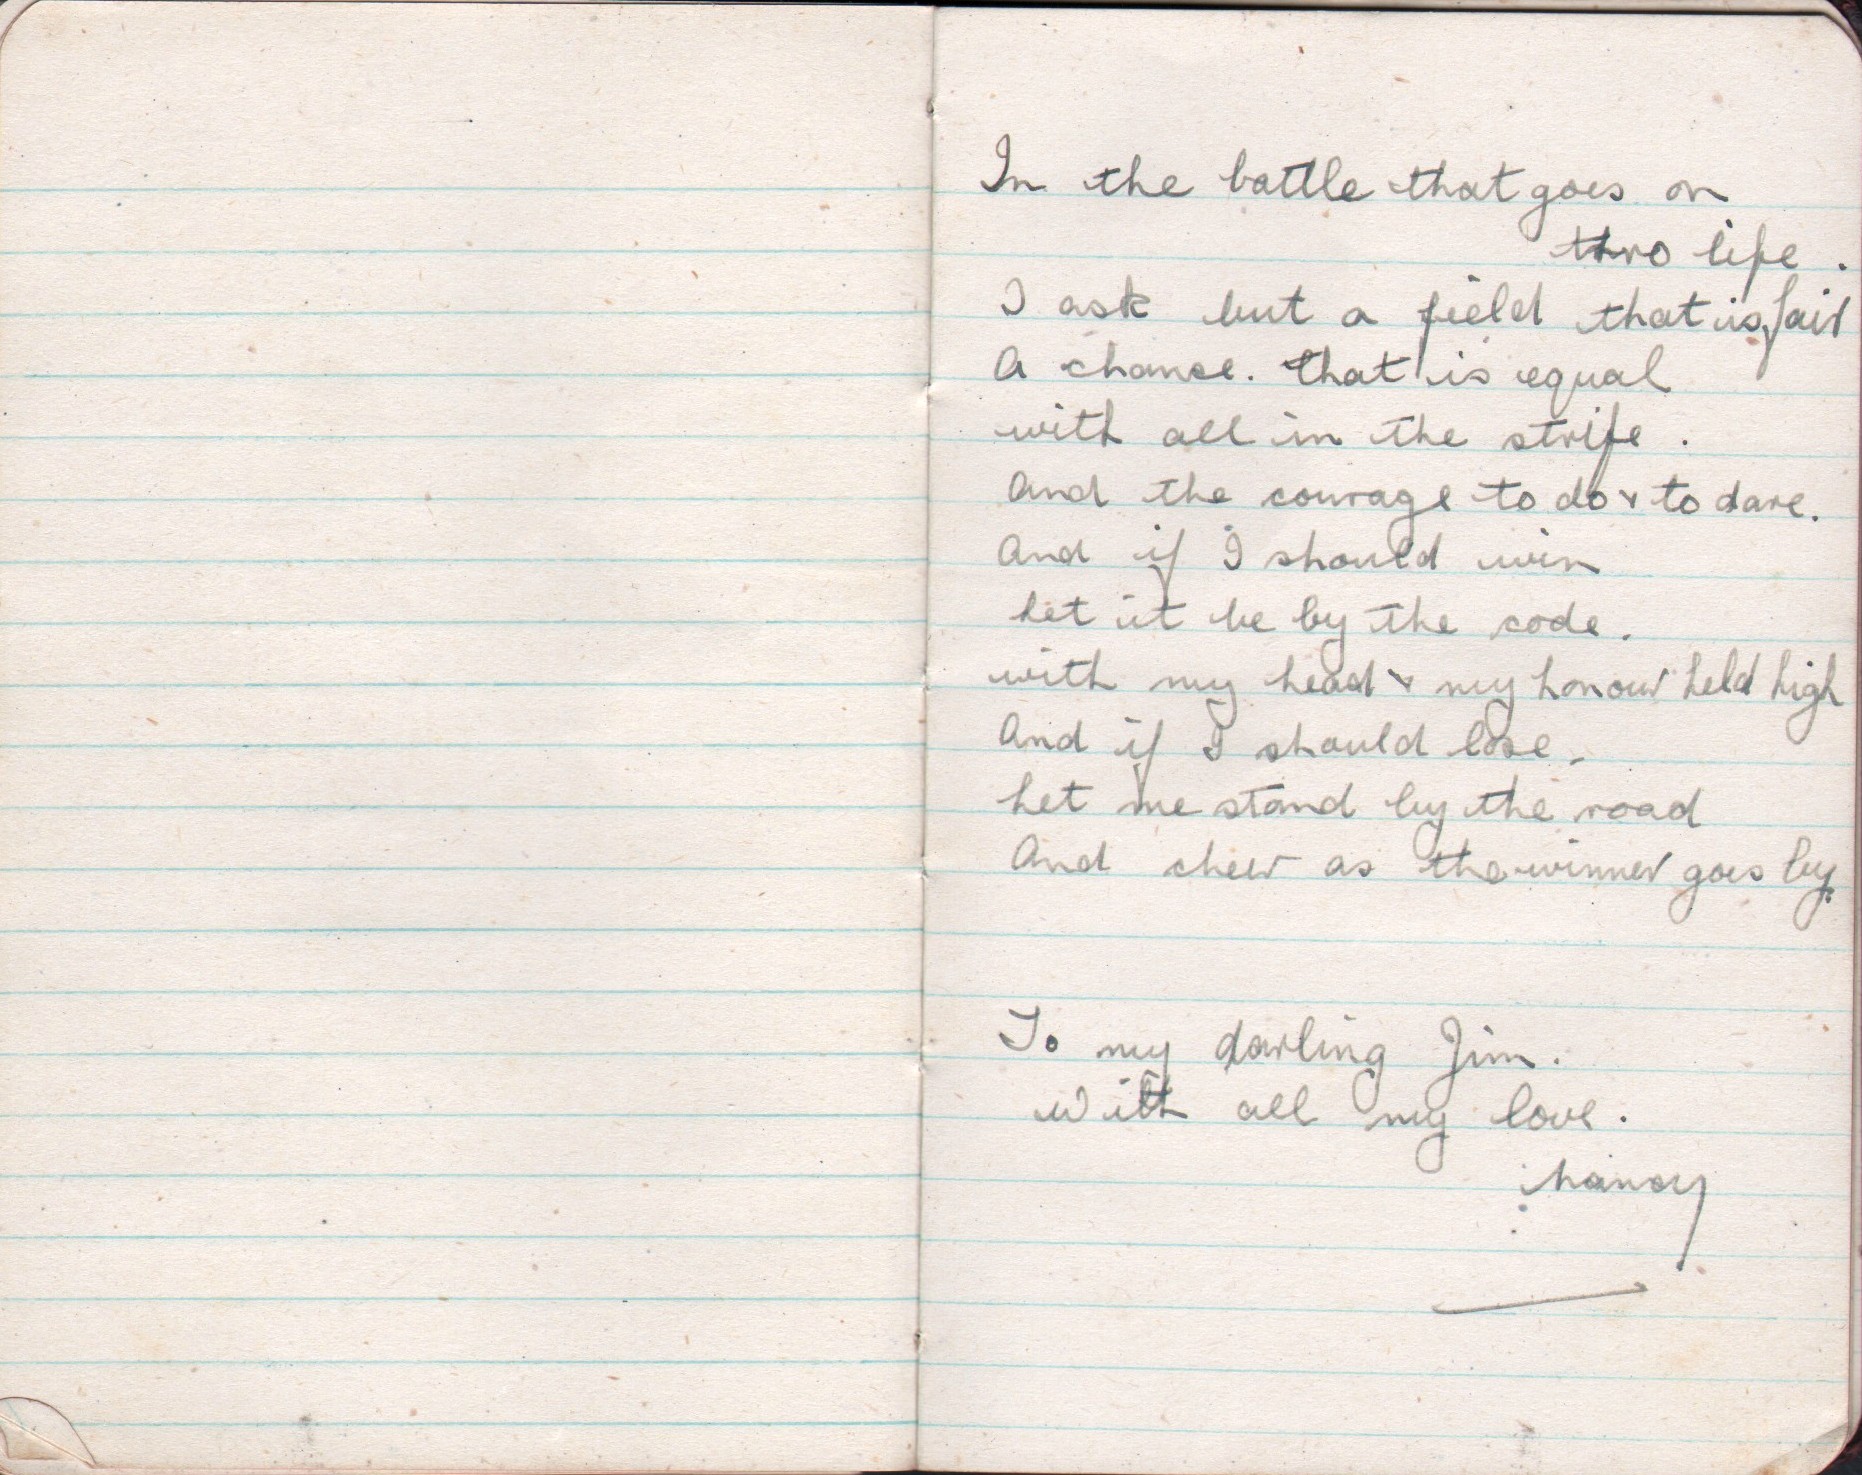 In the battle that goes on
thro life .
I ask but a field that is fair
A chance. that is equal
with all in the strife .
And the courage to do & to dare.
And if I should win
Let it be by the code .
with my head & my honour held high
And if I should lose .
Let me stand by the road
And cheer as the winner goes by.
To my darling Jim .
With all my love .
Nancy